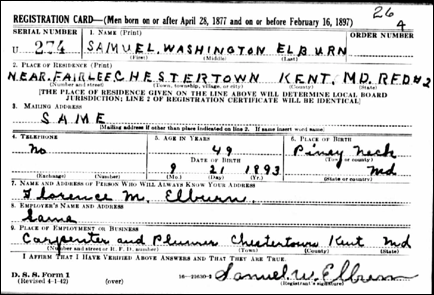 REGISTRATION CARD—(Men born on or after April 28, 1877 and on or before February 16, 1897)
26
4
SERIAL NUMBER
1. NAME (Print)
ORDER NUMBER
U 274
SAMUEL WASHINGTON ELBURN
(First) (Middle) (Last)
2. PLACE OF RESIDENCE (Print)
NEAR FAIRLEE CHESTERTOWN KENT, MD. RFD #2
(Number and street) (Town, township, village, or city) (County) (State)
[THE PLACE OF RESIDENCE GIVEN ON THE LINE ABOVE WILL DETERMINE LOCAL BOARD
JURISDICTION; LINE 2 OF REGISTRATION CERTIFICATE WILL BE IDENTICAL]
3. MAILING ADDRESS
SAME
[Mailing address if other than place indicated on line 2. If same insert word same]
4. TELEPHONE
5. AGE IN YEARS
6. PLACE OF BIRTH
No
49
Piney Neck
DATE OF BIRTH
(Town or county)
9 21 1893
Md
(Exchange) (Number) (Mo.) (Day) (Yr.) (State or country)
7. NAME AND ADDRESS OF PERSON WHO WILL ALWAYS KNOW YOUR ADDRESS
Florence M. Elburn
8. EMPLOYER'S NAME AND ADDRESS
Same
9. PLACE OF EMPLOYMENT OR BUSINESS
Carpenter and Plumer Chestertown Kent Md
(Number and street or R. F. D. number) (Town) (County) (State)
I AFFIRM THAT I HAVE VERIFIED ABOVE ANSWERS AND THAT THEY ARE TRUE.
D. S. S. Form 1
(Revised 4-1-42) (over)
Samuel W. Elburn
(Registrant's signature)